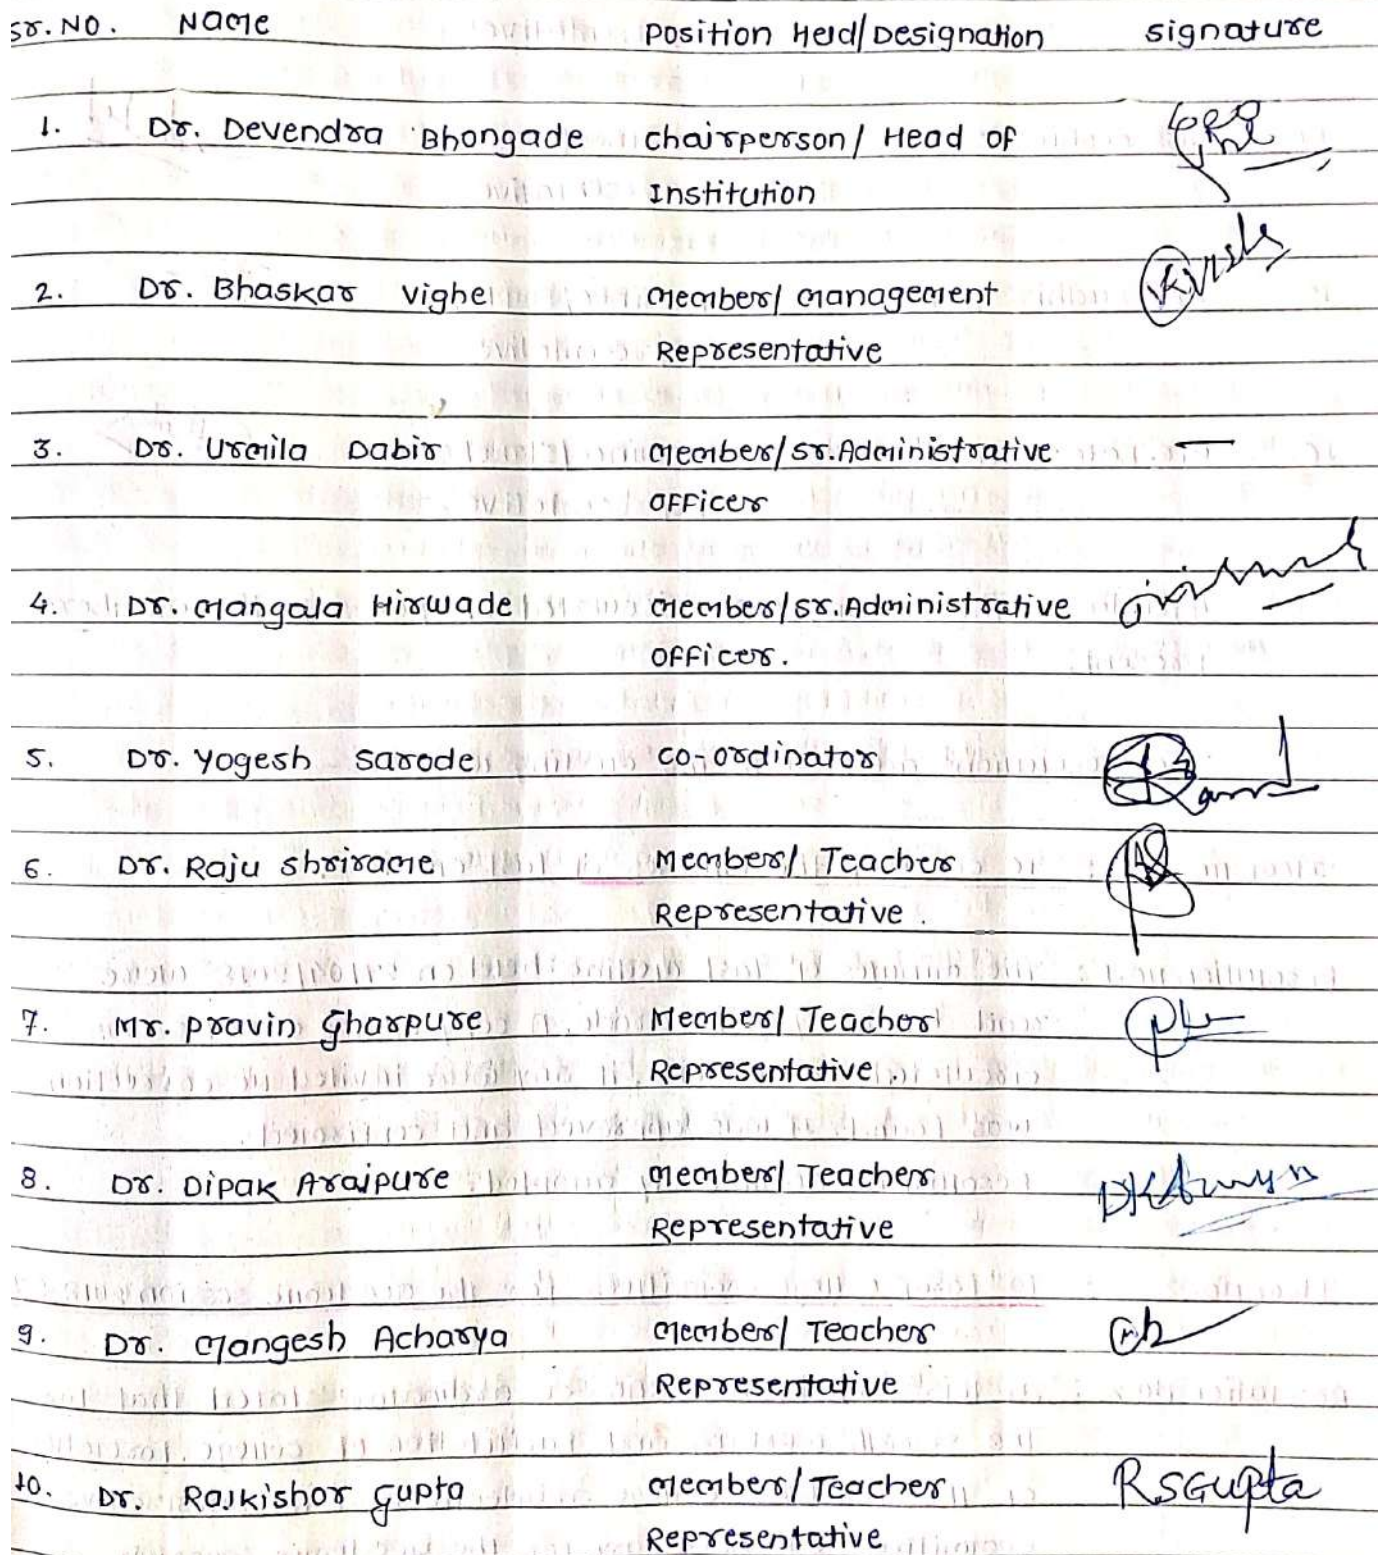 Sr. No. Name Position Held/Designation Signature
1. Dr. Devendra Bhongade Chairperson/ Head of
Institution
2. Dr. Bhaskar Vighe Member/ Management
Representative
3. Dr. Urmila Dabir Member/Sr.Administrative —
Officer
4. Dr. Mangala Hirwade Member/Sr.Administrative
Officer.
5. Dr. Yogesh Sarode Co-ordinator
6. Dr. Raju Shrirame Member/ Teacher
Representative.
7. Mr. Pravin Gharpure Member/ Teacher
Representative.
8. Dr. Dipak Arajpure Member/ Teacher
Representative
9. Dr. Mangesh Acharya Member/ Teacher
Representative
10. Dr. Rajkishor Gupta Member/ Teacher RSGupta
Representative